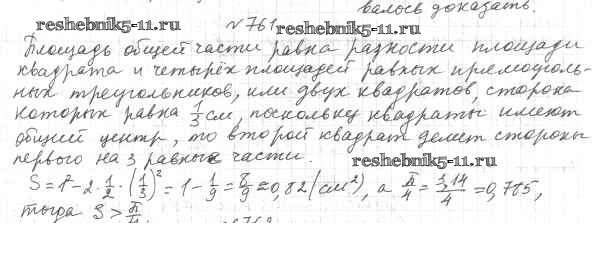 валось доказать.
reshebnik5-11.ru
№761 reshebnik5-11.ru
Площадь общей части равна разности площади
квадрата и четырёх площадей равных прямоуголь-
ных треугольников, или двух квадратов, сторона
которых равна 1/3 см, поскольку квадраты имеют
общий центр, то второй квадрат делит стороны
первого на 3 равные части.
reshebnik5-11.ru
S = 1² - 2 · 1/2 · (1/3)² = 1 - 1/9 = 8/9 ≈ 0,82 (см²), а π/4 = 3,14/4 = 0,785,
тогда S > π/4